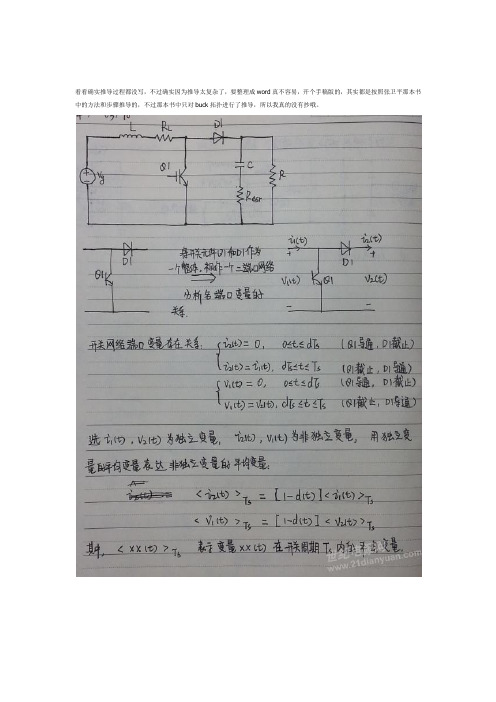 看着确实推导过程都没写，不过确实因为推导太复杂了，要整理成word真不容易，开个手稿版的，其实都是按照张卫平那本书
中的方法和步骤推导的，不过那本书中只对buck拓扑进行了推导，所以我真的没有抄哦。
L RL D1
Vg Q1 C R
Resr
将开关元件Q1和D1作为
一个整体，视作一个二端口网络
分析各端口变量的
关系.
D1
Q1
i1(t) i2(t)
+ D1 +
V1(t) Q1 V2(t)
- -
开关网络端口变量存在关系. i2(t)=0, 0≤t≤dTs (Q1导通, D1截止)
i2(t)=i1(t), dTs≤t≤Ts (Q1截止, D1导通)
V1(t)=0, 0≤t≤dTs (Q1导通, D1截止)
V1(t)=V2(t), dTs≤t≤Ts (Q1截止, D1导通)
选 i1(t), V2(t) 为独立变量, i2(t), V1(t) 为非独立变量, 用独立变
量的平均变量表达非独立变量的平均变量:
<i2(t)>Ts = [1-d(t)]<i1(t)>Ts
<V1(t)>Ts = [1-d(t)]<V2(t)>Ts
其中, <xx(t)>Ts 表示变量xx(t)在开关周期Ts内的平均变量.
www.21dianyuan.com